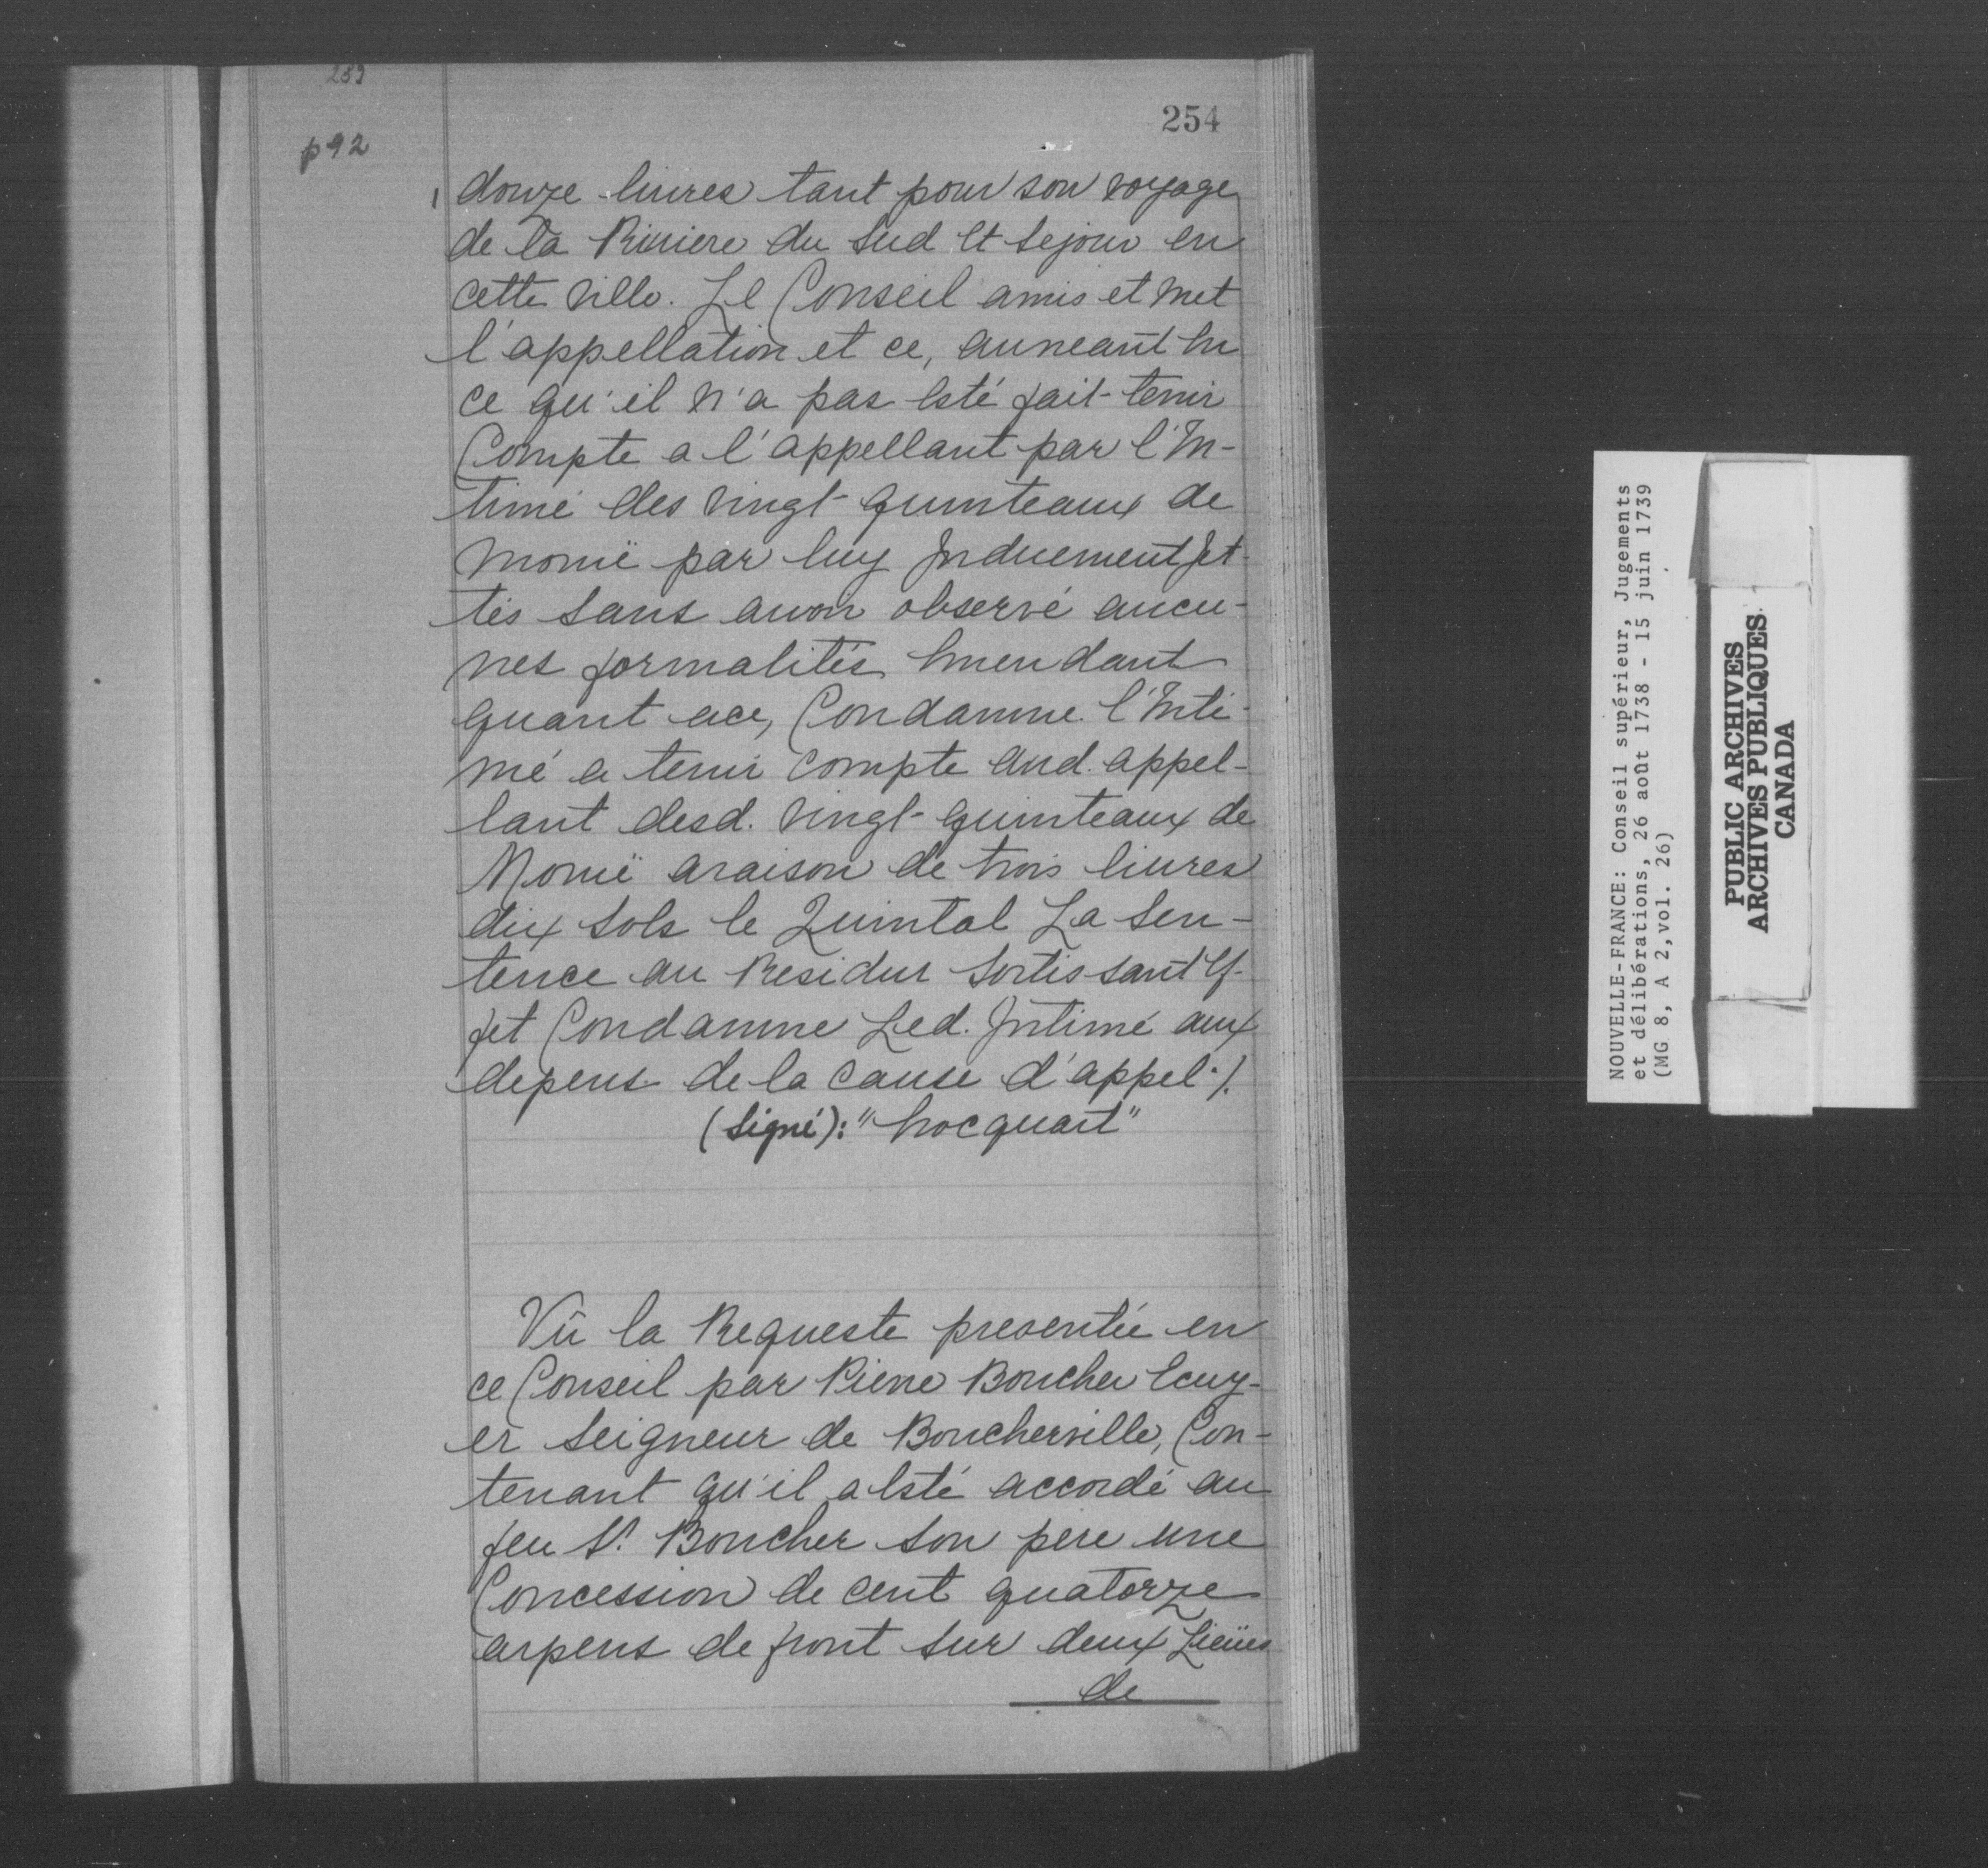 254
p 92
douze livres tant pour son voyage
de la Riviere du Sud Et Sejour en
cette ville. Le Conseil amis et met
l'appellation et ce, auneant En
ce qu'il n'a pas Esté fait tenir
Compte a l'appellant par l'In-
timé des vingt quinteaux de
moruë par luy Induement Jet-
tés sans avoir observé aucu-
nes formalités Emendant
quant ace, Condamne l'Inti-
mé a tenir compte aud. appel-
lant desd. vingt quinteaux de
Moruë araison de trois livres
dix sols le Quintal La Sen-
tence au Residue Sortissant Ef-
fet Condamne Led. Intimé aux
depens de la cause d'appel ./.
(Signé): "hocquart"
Vû la Requeste presentée en
ce Conseil par Pierre Boucher Ecuy-
er Seigneur de Boucherville, Con-
tenant qu'il a Esté accordé au
feu Sr. Boucher son pere une
Concession de cent quatorze
arpens de front sur deux Lieües
de
NOUVELLE-FRANCE: Conseil supérieur, Jugements
et délibérations, 26 août 1738 - 15 juin 1739
(MG 8, A 2, vol. 26)
PUBLIC ARCHIVES
ARCHIVES PUBLIQUES
CANADA